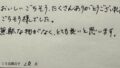 おいしい、ごちそう、たくさんありがとうございました。
ごちそう様でした。
無駄な物がなく、とても良いと思います。